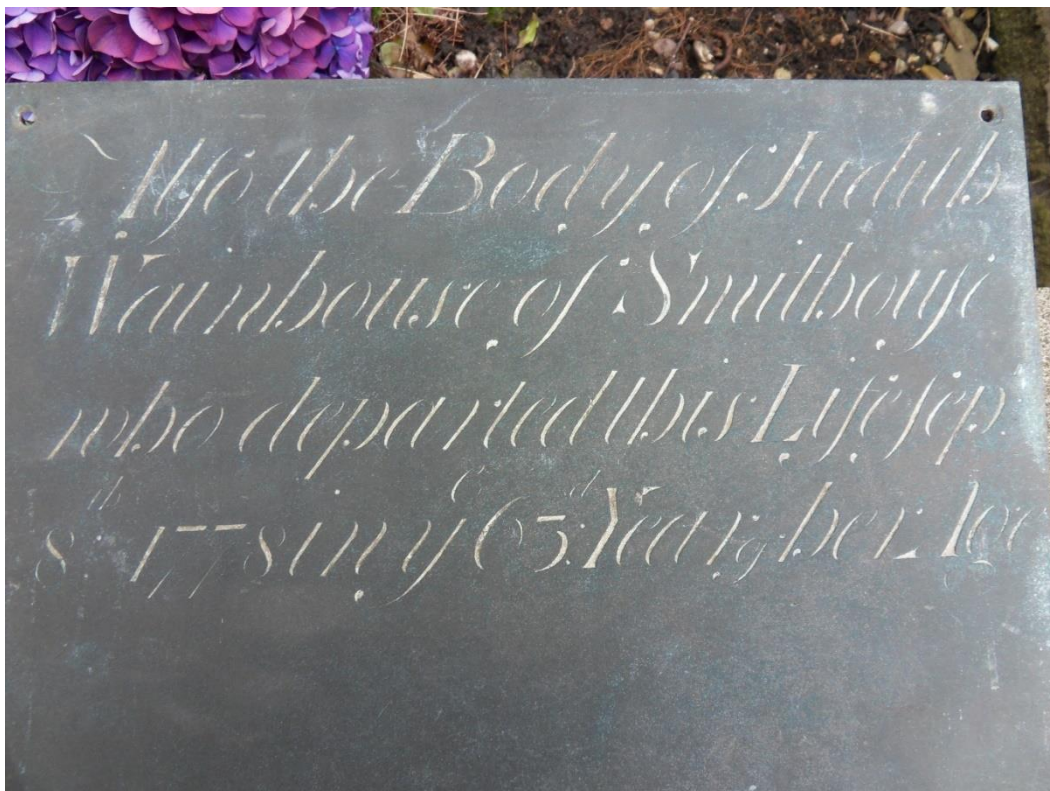 Also the Body of Judith
Wainhouse of Smithouse
who departed this Life Sep.
8th 1778 in ye 63d Year of her Age